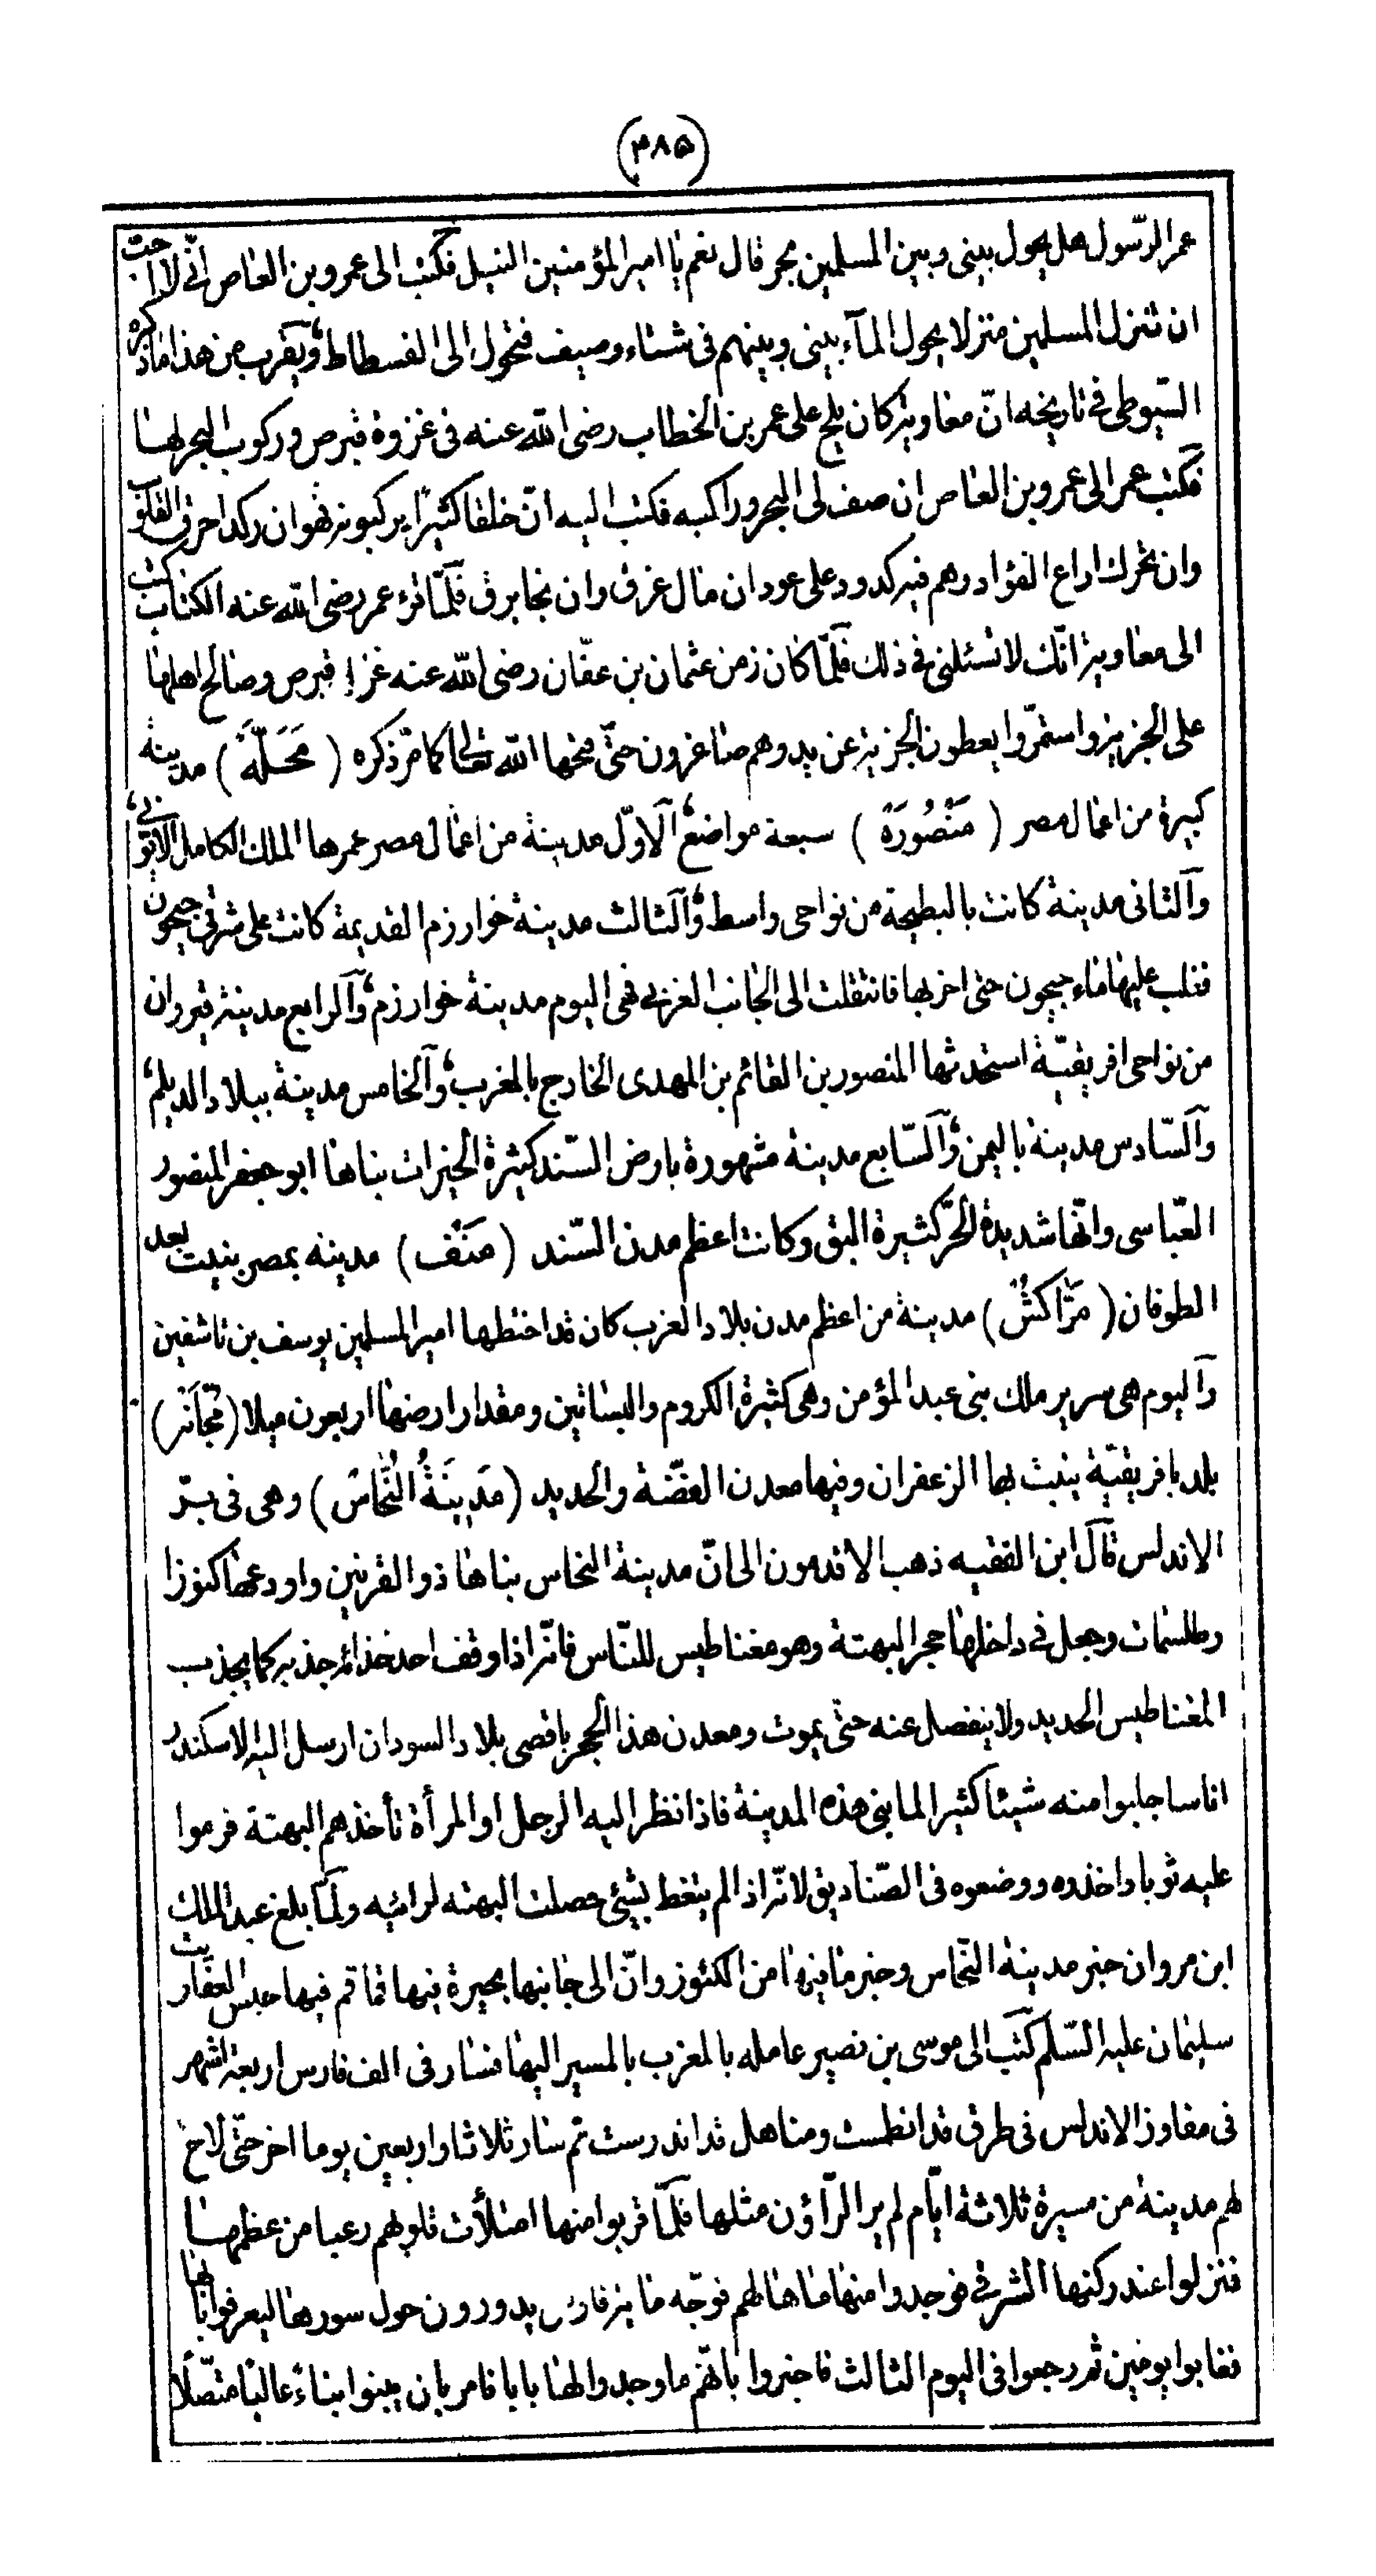 (٤٨٥)
عمر الرّسول هل يحول بينى وبين المسلمين بحر قال نعم يا امير المؤمنين النيل فكتب الى عمرو بن العاص انّى لا احب
ان تنزل المسلمين منزلا يحول المآء بينى وبينهم فى شتاء وصيف فتحول الى الفسطاط ويقرب من هذا ما ذكره
السّيوطى فى تاريخه انّ معاوية كان يلح على عمر بن الخطاب رضى الله عنه فى غزوة قبرص وركوب البحر لها
فكتب عمر الى عمرو بن العاص ان صف لى البحر وراكبه فكتب اليه انّ خلقا كثيرا يركبونه فهو ان ركد احرق القلوب
وان تحرك اراع الفؤاد وهم فيه كدود على عود ان مال غرق وان نجا برق فلمّا قرء عمر رضى الله عنه الكتاب كتب
الى معاوية انّك لا تسئلنى فى ذلك فلمّا كان زمن عثمان بن عفّان رضى الله عنه غزا قبرص وصالح اهلها
على الجزية واستمرّوا يعطون الجزية عن يد وهم صاغرون حتّى فتحها الله تعالى كما مرّ ذكره (مَحَلّة) مدينة
كبيرة من اعمال مصر (مَنْصُورَة) سبعة مواضع الاوّل مدينة من اعمال مصر عمرها الملك الكامل الايّوبى
وآلثانى مدينة كانت بالبطيحة من نواحى واسط وآلثالث مدينة خوارزم القديمة كانت على شرقى جيحون
فغلب عليها ماء جيحون حتى اخربها فانتقلت الى الجانب الغربى فهى اليوم مدينة خوارزم وآلرابع مدينة قيروان
من نواحى افريقيّة استحدثها المنصور بن القائم بن المهدى الخارج بالمغرب وآلخامس مدينة ببلاد الديلم
وآلسّادس مدينة باليمن وآلسّابع مدينة مشهورة بارض السّند كثيرة الخيرات بناها ابو جعفر المنصور
العبّاسى وانّها شديدة الحرّ كثيرة البق وكانت اعظم مدن السّند (مَنَف) مدينه بمصر بنيت بعد
الطوفان (مَرّاكَش) مدينة من اعظم مدن بلاد الغرب كان قد اختطها امير المسلمين يوسف بن تاشفين
وآليوم هى سرير ملك بنى عبد المؤمن وهى كثيرة الكروم والبساتين ومقدار ارضها اربعون ميلا (مَجّانَة)
بلد بافريقيّة ينبت بها الزعفران وفيها معدن الفضّة والحديد (مَدِينَةُ النُّحَاس) وهى فى بريّة
الاندلس قال ابن الفقيه ذهب الاقدمون الى انّ مدينة النحاس بناها ذو القرنين واودعها كنوزا
وطلسمات وجعل فى داخلها حجر البهتة وهو مغناطيس للنّاس فانّه اذا وقف احد حذائه جذبه كما يجذب
المغناطيس الحديد ولا ينفصل عنه حتى يموت ومعدن هذا الحجر باقصى بلاد السودان ارسل اليه الاسكندر
اناسا جلبوا منه شيئا كثيرا لما بنى هذه المدينة فاذا نظر اليه الرجل او المرأة تأخذهم البهتة فرموا
عليه ثوبا واخذوه ووضعوه فى الصّناديق لانّه اذا لم يتغط بشيئ حصلت البهته لرائيه ولمّا بلغ عبد الملك
ابن مروان خبر مدينة النّحاس وخبر ما فيها من الكنوز وانّ الى جانبها بحيرة فيها قماقم فيها حبس العفاريت
سليمان عليه السّلم كتب الى موسى بن نصير عامله بالمغرب بالمسير اليها فسار فى الف فارس اربعة اشهر
فى مفاوز الاندلس فى طرق قد انطمست ومناهل قد اندرست ثم سار ثلاثا واربعين يوما اخر حتّى لاح
لهم مدينة من مسيرة ثلاثة ايّام لم ير الرّاؤن مثلها فلمّا قربوا منها امتلأت قلوبهم رعبا من عظمها
فنزلوا عند ركنها الشرقى فوجدوا منها ما هالهم فوجّه مائة فارس يدورون حول سورها ليعرفوا بابها
فغابوا يومين ثم رجعوا فى اليوم الثالث فاخبروا بانّهم ما وجدوا لها بابا فامر بان يبنوا بناء عاليا متّصلًا